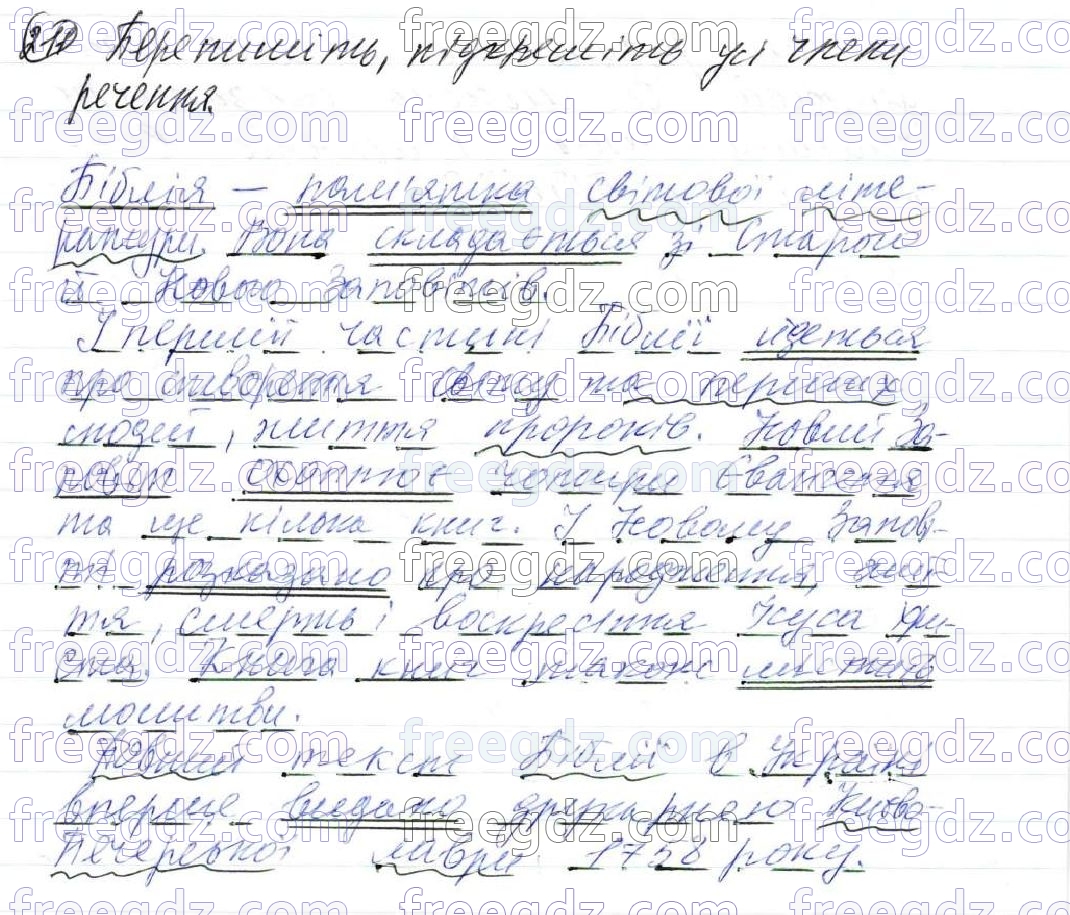 212 Перепишіть, підкресліть усі члени
речення.
Біблія – пам'ятка світової літе-
ратури. Вона складається зі Старого
й Нового Заповітів.
У першій частині Біблії йдеться
про створення світу та перших
людей, життя пророків. Новий За-
повіт охоплює чотири Євангелія
та ще кілька книг. У Новому Запов-
ті розказано про народження, жит-
тя, смерть і воскресіння Ісуса Хри-
ста. Книга книг також містить
молитви.
Повний текст Біблії в Україні
вперше видано друкарнею Києво-
Печерської лаври 1758 року.
freegdz.com